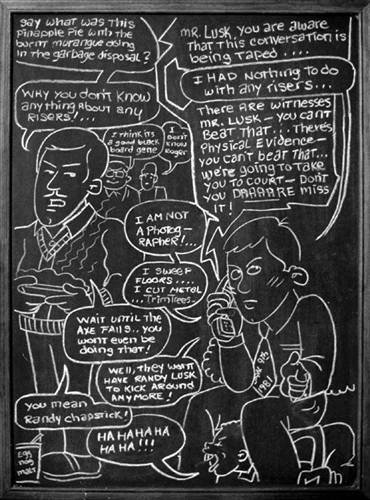 Say what was this
Pinapple Pie with the
burnt murangue doing
in the garbage disposal?
Mr. Lusk, you are aware
that this conversation is
being taped ....
I had nothing to do
with any risers...
Why you don't know
anything about any
RISERS!....
I think its
a good black
board gene
I
don't
know
Roger
There are witnesses
Mr. Lusk - you can't
beat that... theres
physical evidence -
you can't beat that...
we're going to take
you to court - don't
you DAAAARE miss
it!
I am not
a photog-
rapher!...
I sweep
floors....
I cut metal
...Trim trees..
Wait until the
axe falls... you
wont even be
doing that!
Well, they wont
have Randy Lusk
to kick around
anymore!
you mean
Randy chapstick!
HA HA HA HA
HA HA!!!
1981
Egg
nog